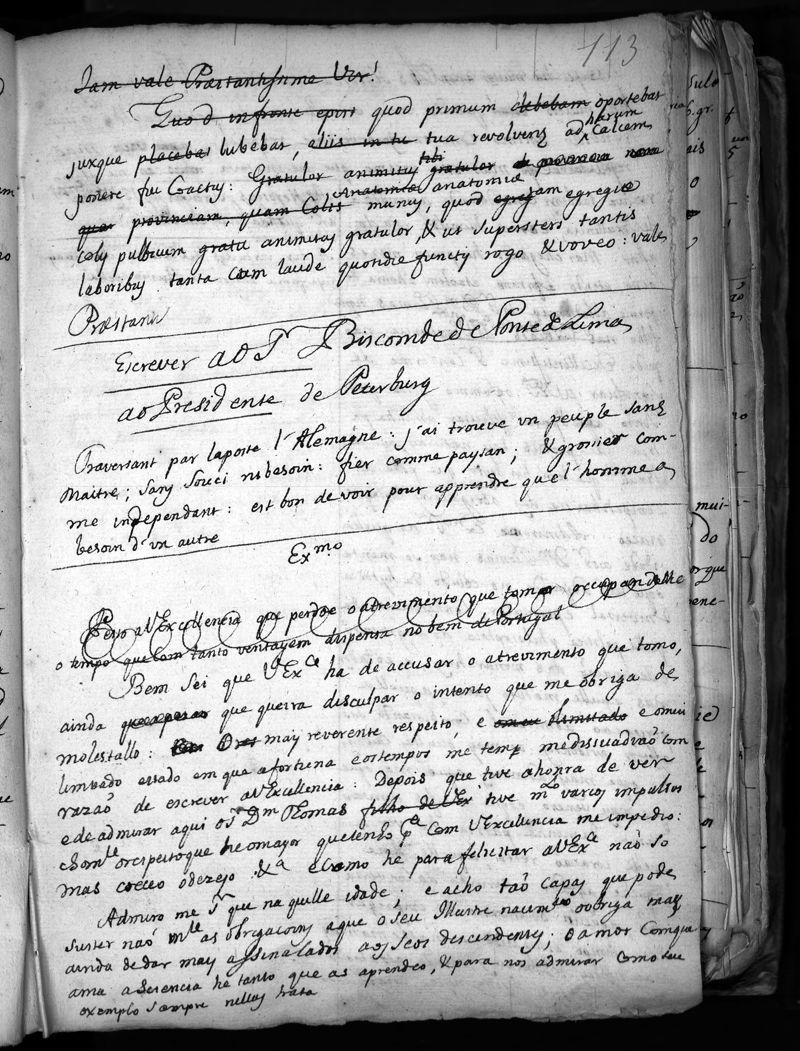 113
Jam vale Præstantissime Vir!
Quod in fronte quod primum debebam oportebat
juxque placebat lubebat, aliis in tua revolvens ad harum Calcem
ponere fui Coactus: Gratulor animitus tibi gratulor
quar provinciam, quam Colis Anatomiæ anatomiæ munus, quod egreg tam egregie
colis publicum gratu animitus gratulor, & ut superstes tantis
laboribus tanta cum laude quotidie functus rogo & voveo: vale
Præstant
Escrever ao Sr Biscomde de Ponte de Lima
ao Presidente de Peterburg
Traversant par laposte l'Alemagne: j'ai trouve un peuple sans
Maitre; sans souci ni besoin: fier comme paysan; & grossier com-
me independant: est bon de voir pour apprendre que l'homme a
besoin d'un autre
Exmo
Peso a VExcellencia que perdoe o atrevimento que tomar occupandolle
o tempo que com tanto ventagem dispensa no bem de Portugal
Bem sei que VExca ha de accusar o atrevimento que tomo,
ainda que queira desculpar o intento que me obriga de
molestallo: may reverente respeito, e o meu limitado e o miu
limitado estado em que a fortuna e os tempos me tem me dissuadiaõ com
razaõ de escrever a VExcellencia: Depois que tive a honra de ver
e de admirar aqui o Sr Dm Thomas filho de VEx tive mto varios impulsos
o respeito que he o mayor que tenho pa com VExcellencia me impedio:
mas creceo o dezejo &a e Como he para felicitar a VExa naõ so
Admiro me Sr que na quille idade; e acho taõ Capas que pode
suster naõ as obrigacoins a que o seu Illustre nacimto o obriga mas
ainda de dar may assenalados aos seos descendentes; o amor Com que
ama a sciencia he tanto que as aprendeo, & para nos admirar como seu
exemplo sempre nellas trata